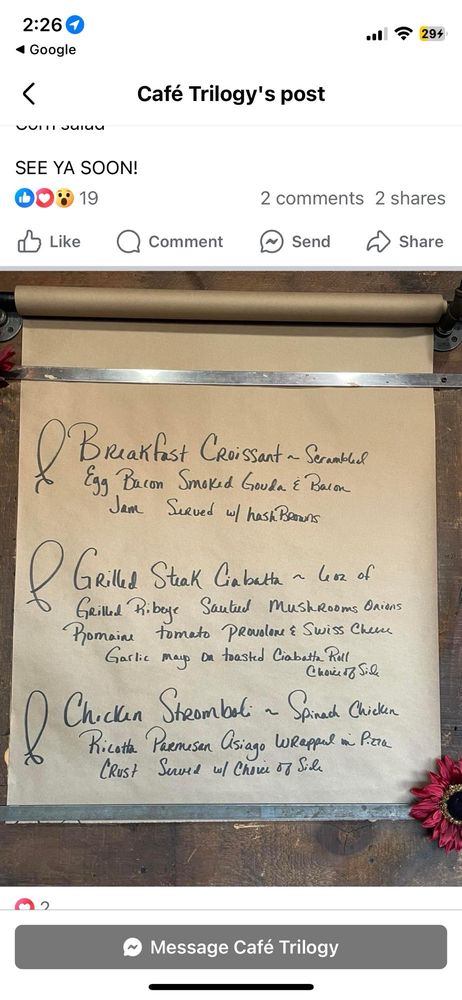 2:26
29
◀ Google
Café Trilogy's post
Corn salad
SEE YA SOON!
19
2 comments 2 shares
Like Comment Send Share
Breakfast Croissant ~ Scrambled
Egg Bacon Smoked Gouda & Bacon
Jam Served w/ hashBrowns
Grilled Steak Ciabatta ~ 6oz of
Grilled Ribeye Sauteed Mushrooms Onions
Romaine tomato Provolone & Swiss Cheese
Garlic mayo on toasted Ciabatta Roll
Choice of Side
Chicken Stromboli ~ Spinach Chicken
Ricotta Parmesan Asiago Wrapped in Pizza
Crust Served w/ Choice of Side
2
Message Café Trilogy